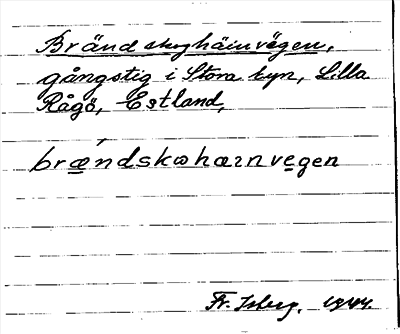 Brändskoghäinvägen,
gångstig i Stora byn, Lilla
Rågö, Estland,
brændskωhæinvegen
Fr. Isberg. 1944.